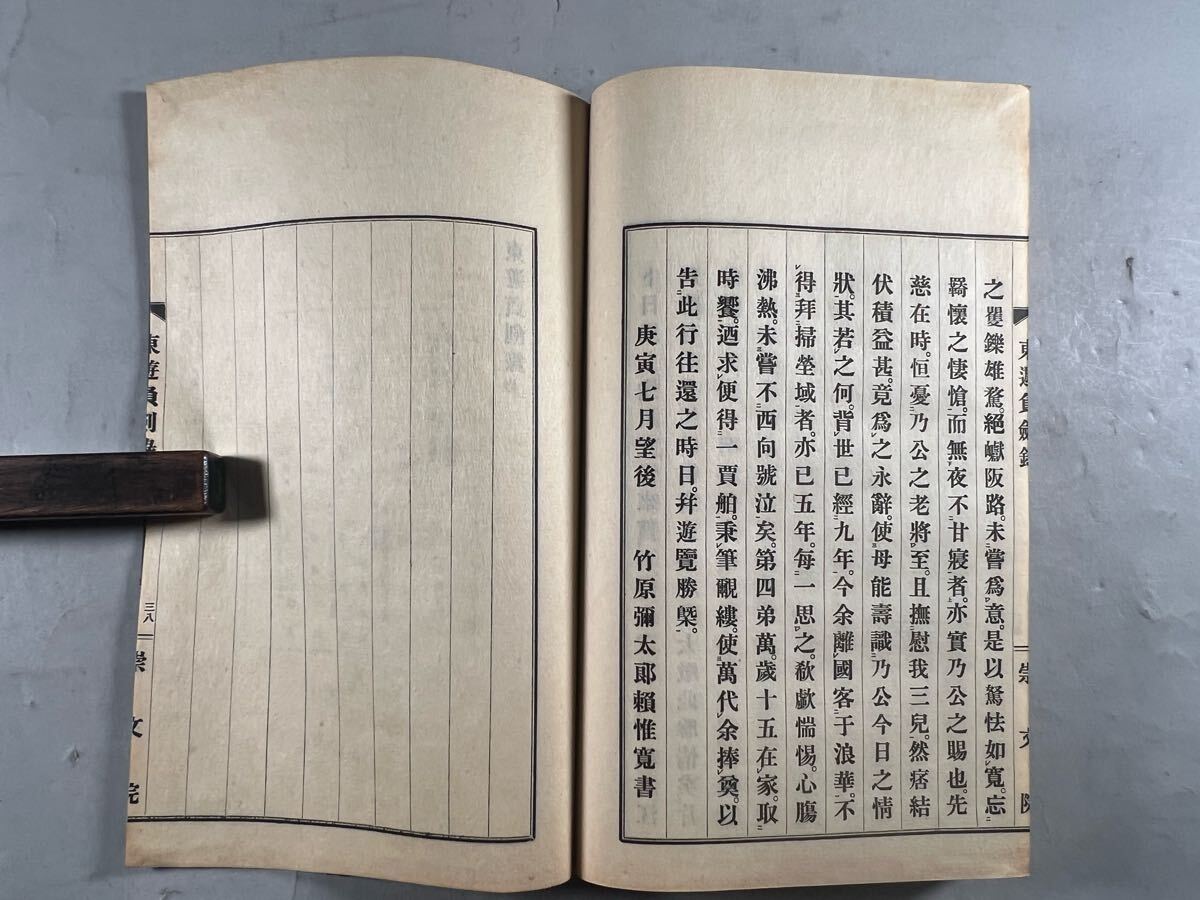 之矍鑠雄騖。絕巘阪路。未嘗爲意。是以駑怯如寬。忘
羇懷之悽愴。而無夜不甘寢者。亦實乃公之賜也。先
慈在時。恒憂乃公之老將至。且撫慰我三兒。然痞結
伏積益甚。竟爲之永辭。使母能壽識乃公今日之情
狀。其若之何。背世已經九年。今余離國客于浪華。不
得拜掃塋域者。亦已五年。每一思之。欷歔惴惕。心膓
沸熱。未嘗不西向號泣矣。第四弟萬。歲十五在家。取
時饗。迺求便得一賈舶。秉筆覼縷。使萬代余捧奠。以
告此行往還之時日。幷遊覽勝槩。
庚寅七月望後　竹原彌太郞賴惟寬書
東遊負劍錄
崇文院
三八
崇文院